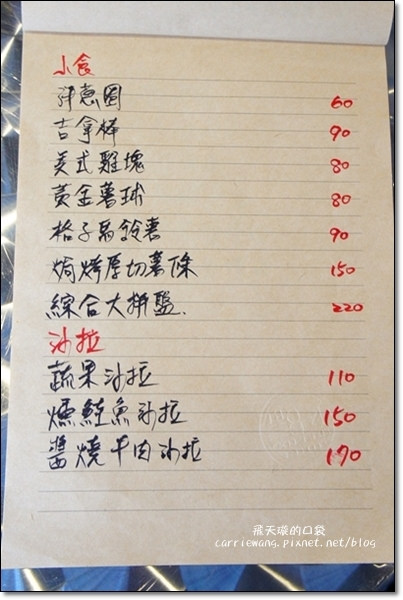 小食
洋蔥圈 60
吉拿棒 90
美式雞塊 80
黃金薯球 80
格子馬鈴薯 90
焗烤厚切薯條 150
綜合大拼盤. 220
沙拉
蔬果沙拉 110
燻鮭魚沙拉 150
醬燒牛肉沙拉 170
飛天璇的口袋
carriewang.pixnet.net/blog